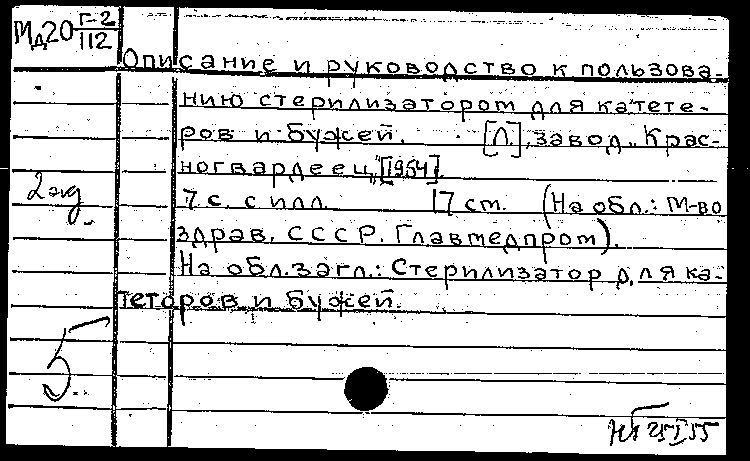 Мд20 Г-2
112
Описание и руководство к пользова-
нию стерилизатором для катете-
ров и бужей. [Л.], завод „Крас-
ногвардеец„, [1954]
2 экз
7 с. с илл. 17 см. (На обл.: М-во
здрав. СССР. Главмедпром).
На обл. загл.: Стерилизатор для ка-
теторов и бужей.
5
25 I 55